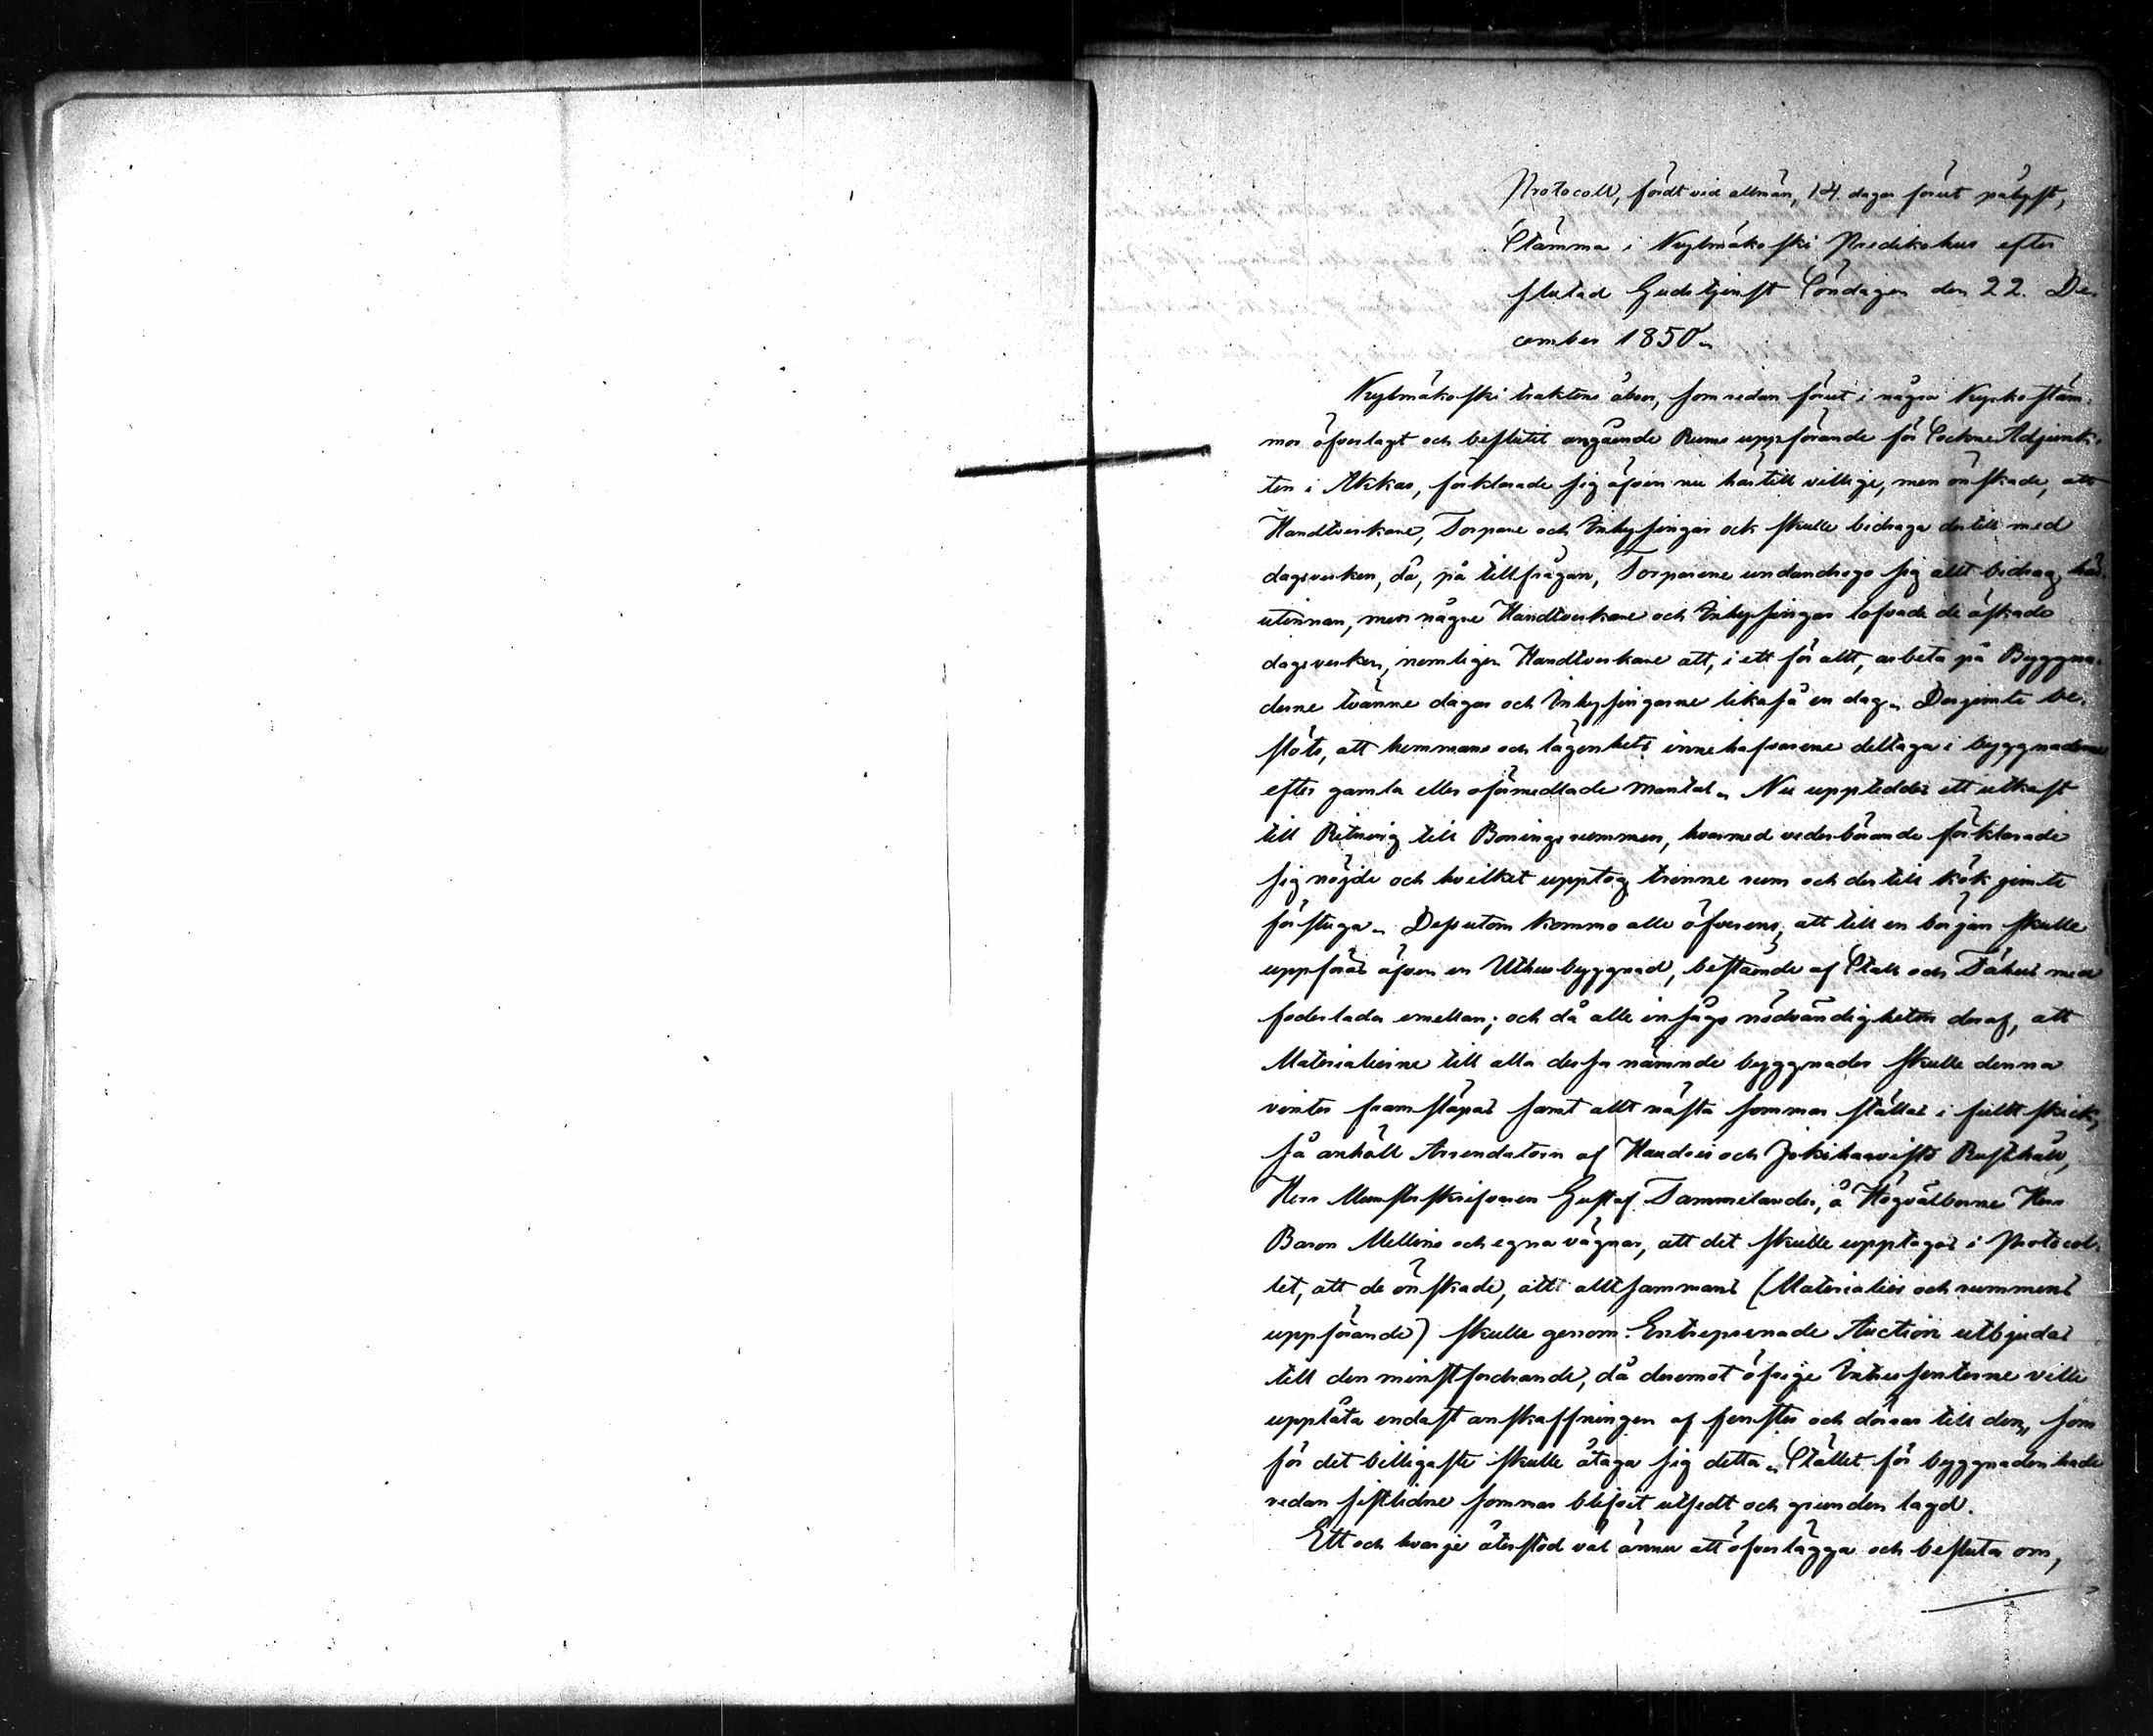 Protocoll, fördt vid allmän, 14. dagar förut pålyst,
Stämma i Kylmäkoski Predikohus efter
slutad Gudstjenst Söndagen den 22. De-
cember 1850.
Kylmäkoski traktens åboer, som redan förut i några Kyrkostäm-
mor öfverlagt och beslutit angående Rums uppförande för Sockne Adjunk-
ten i Akkas, förklarade sig äfven nu härtill villige, men önskade, att
Handtverkare, Torpare och Inhysingar ock skulle bidraga dertill med
dagsverken, då, på tillfrågan, Torparene undandrogo sig allt bidrag här-
utinnan, men någre Handtverkare och Inhysingar lofvade de äskade
dagsverken, nemligen Handtverkare att, i ett för allt, arbeta på Byggna-
derne tvänne dagar och Inhysingarne likaså en dag. Derjemte be-
slöts, att hemmans och lägenhets innehafvarene deltaga i byggnaderne
efter gamla eller oförmedlade mantal. Nu uppleddes ett utkast
till Ritning till Boningsrummen, hvarmed vederbörande förklarade
sig nöjde och hvilket upptog trenne rum och dertill kök jemte
förstuga. Dessutom kommo alle öfverens, att till en början skulle
uppföras äfven en Uthusbyggnad, bestående af Stall och Fähus med
foderlada emellan; och då alle insågo nödvändigheten deraf, att
Materialierne till alla dessa nämnde byggnader skulle denna
vinter framsläpas samt allt nästa sommar ställas i fullt skick,
så anhöll Arrendatorn af Haudois och Jokihaavisto Rusthåll,
Herr Munsterskrifvaren Gustaf Tammelander, å Högvälborne Herr
Baron Mellins och egna vägnar, att det skulle upptagas i Protocol-
let, att de önskade, att alltsammans (Materialier och rummens
uppförande) skulle genom Entreprenade Auction utbjudas
till den minstfordrande, då deremot öfrige Intressenterne ville
upplåta endast anskaffningen af fenster och dörrar till den, som
för det billigaste skulle åtaga sig detta. Stället för byggnaden hade
redan sistlidne sommar blifvit utsedt och grunden lagd.
Ett och hvarje återstod väl ännu att öfverlägga och besluta om,